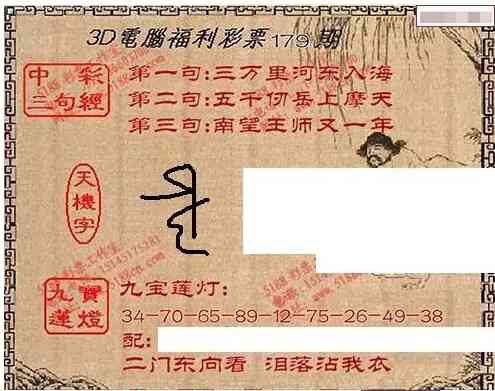 3D電腦福利彩票179期
中彩
三句經
第一句:三万里河东入海
第二句:五千仞岳上摩天
第三句:南望王师又一年
天機字
九寶
蓮燈
九宝莲灯:
34-70-65-89-12-75-26-49-38
配:
二门东向看 泪落沾我衣